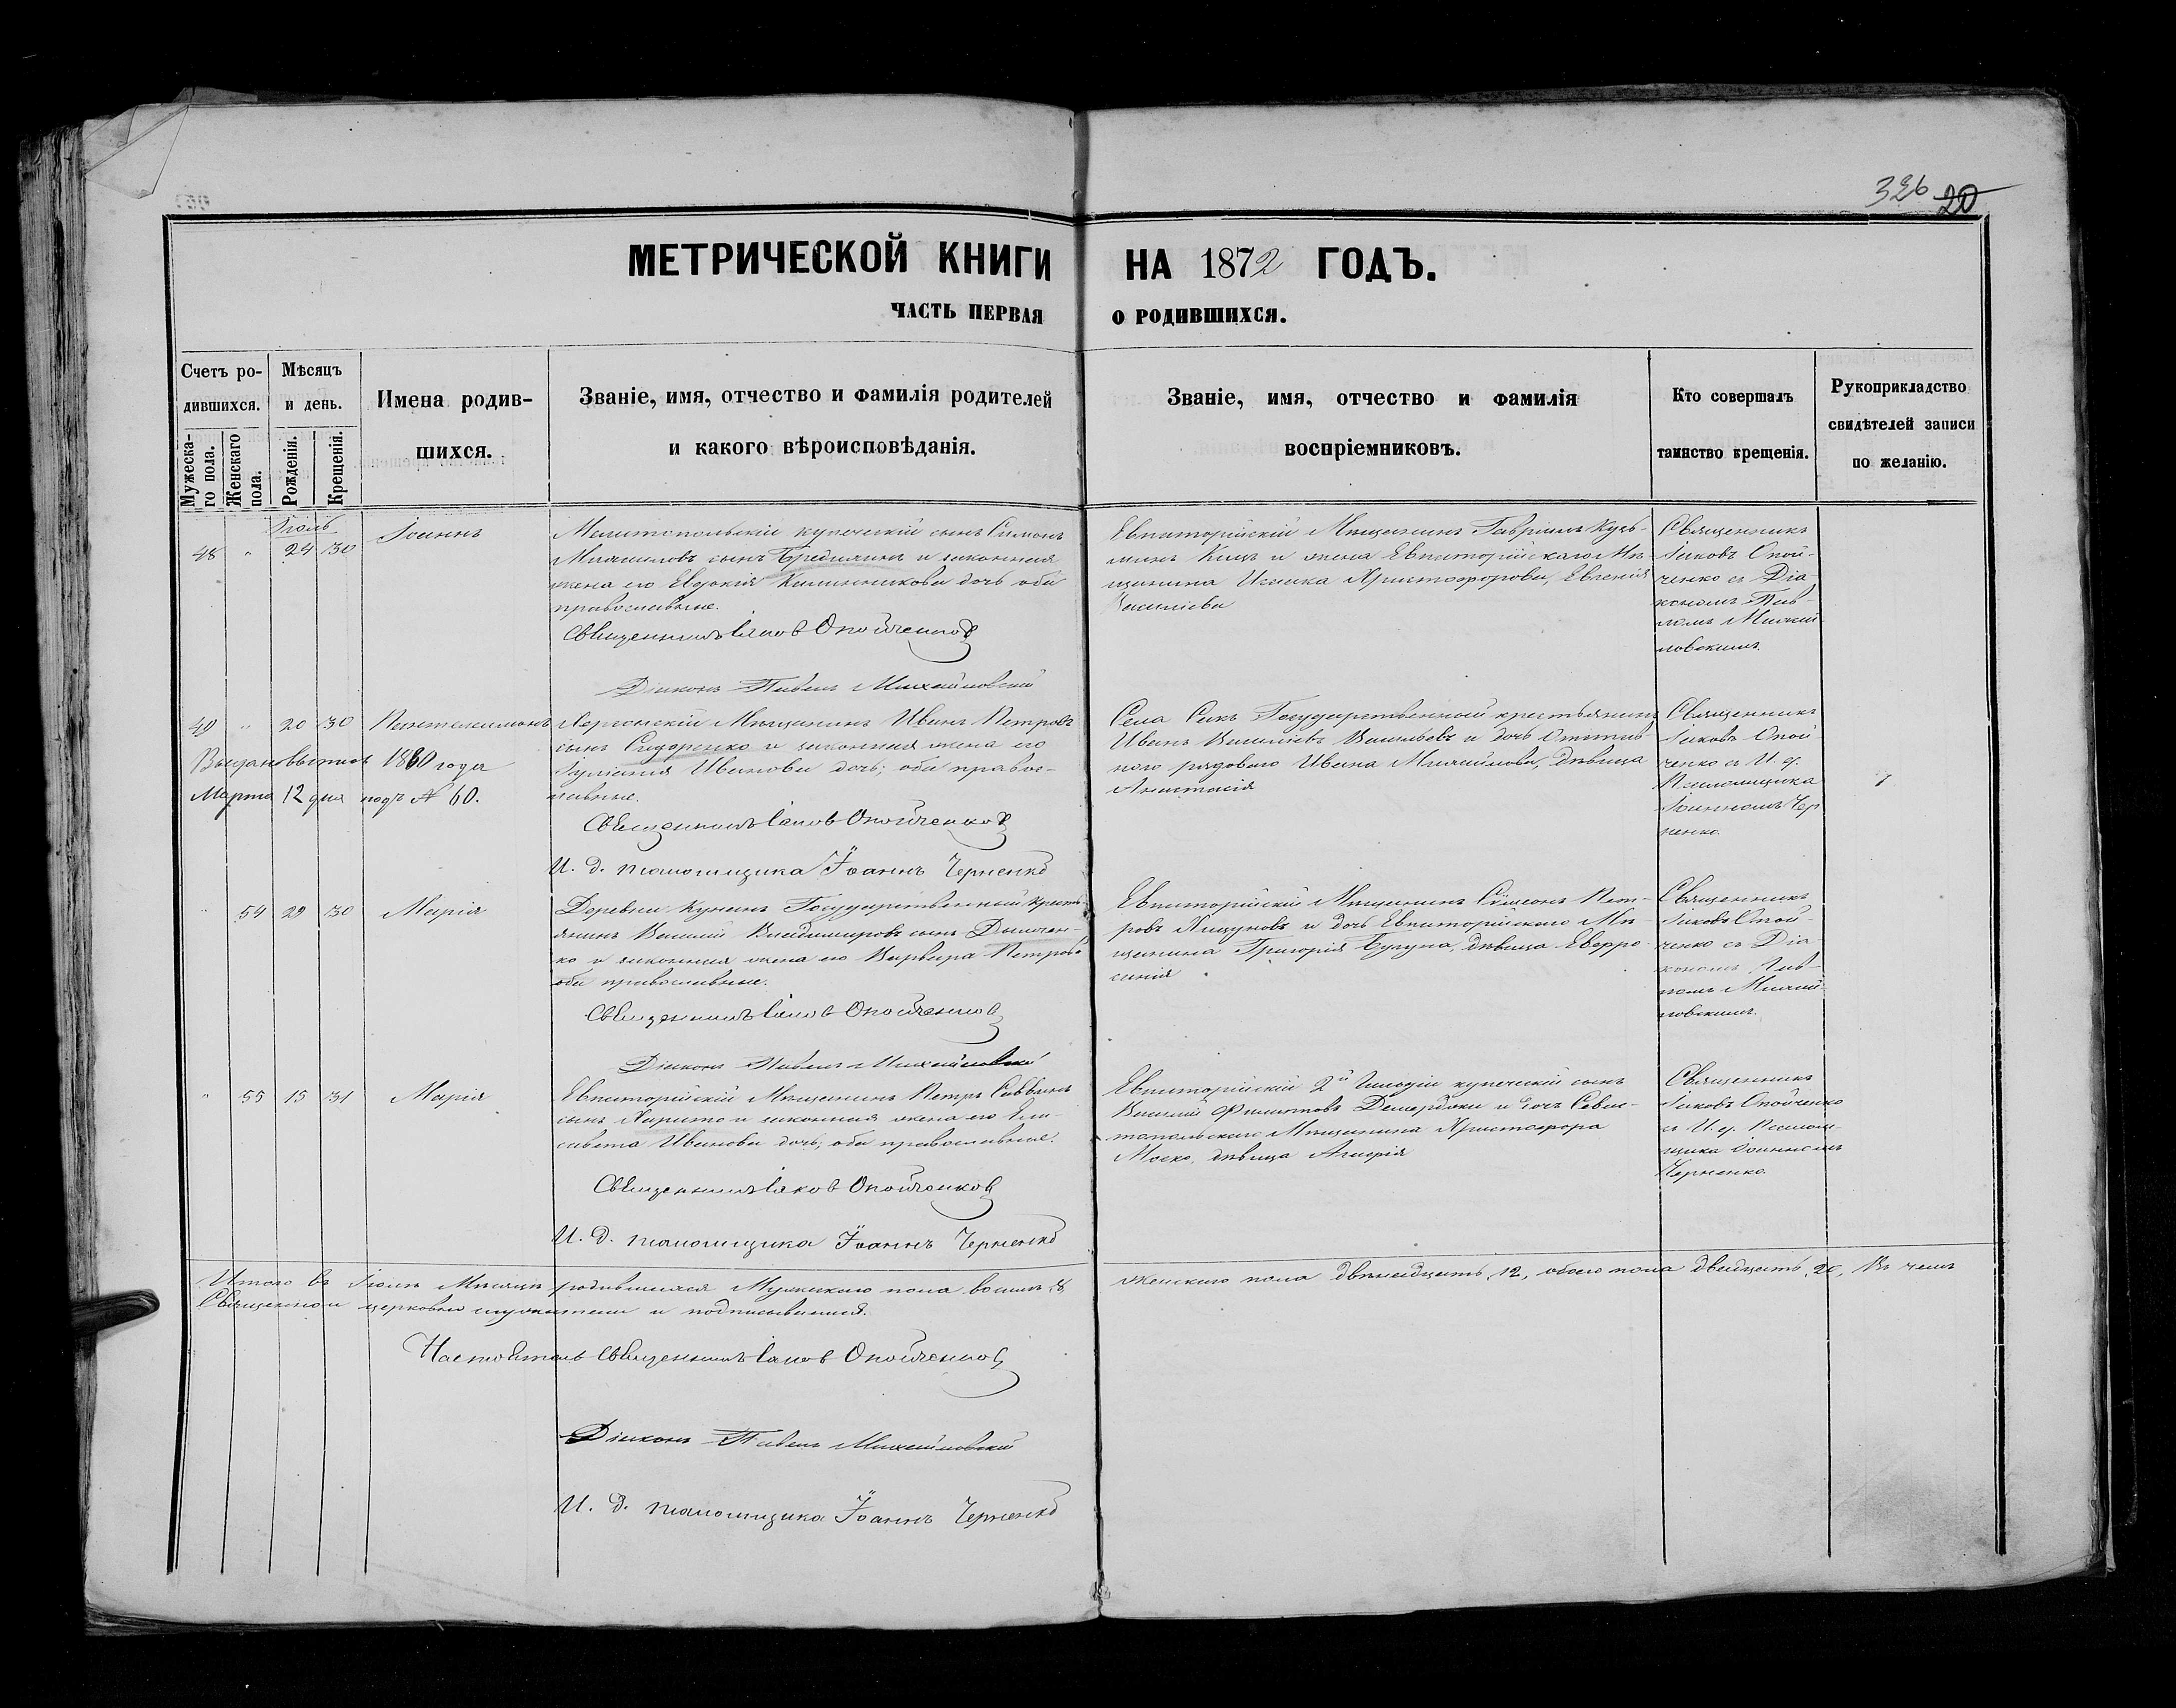 326 20
МЕТРИЧЕСКОЙ КНИГИ НА 1872 ГОДЪ.
ЧАСТЬ ПЕРВАЯ О РОДИВШИХСЯ.
Счетъ ро-
дившихся.
Мужеска-
го пола.
Женскаго
пола.
Мѣсяцъ
и день.
Рожденія.
Крещенія.
Имена родив-
шихся.
Званіе, имя, отчество и фамилія родителей
и какого вѣроисповѣданія.
Званіе, имя, отчество и фамилія
воспріемниковъ.
Кто совершалъ
таинство крещенія.
Рукоприкладство
свидѣтелей записи
по желанію.
Іюль
48 " 24 30
Іоаннъ
Мелитопольскій купеческій сынъ Симонъ
Михаиловъ сынъ и законная
жена его Евдокія дочь оба
православные.
Священникъ Іаковъ Опойченковъ
Діаконъ Павелъ Михайловскій
Евпаторійскій Мѣщанинъ Гавріилъ Кузь-
минъ и жена Евпаторійскаго Мѣ-
щанина Христофорова, Евгенія
Васильева
Священникъ
Іаковъ Опой-
ченко съ Діа-
кономъ Пав-
ломъ Михай-
ловскимъ.
49 " 20 30
Пантелеимонъ
Выдано Свѣтит 1880 года
Марта 12 дня подъ № 60.
Херсонскій Мѣщанинъ Иванъ Петровъ
сынъ Сидоренко и законная жена его
Іуліанія Иванова дочь; оба правос-
лавные.
Священникъ Іаковъ Опойченковъ
И. д. псаломщика Іоаннъ Черненко
Села Сакъ Государственный крестьянинъ
Иванъ Васильевъ Васильевъ и дочь Отстав
наго рядоваго Ивана Михайлова, дѣвица
Анастасія
Священникъ
Іаковъ Опой
ченко съ И. д.
Псаломщика
Іоанномъ Чер
ненко.
" 54 29 30
Марія
Деревни Государственный кресть-
янинъ Василій Владиміровъ сынъ
ко и законная жена его Варвара Петрова
оба православные.
Священникъ Іаковъ Опойченковъ
Діаконъ Павелъ Михайловскій
Евпаторійскій Мѣщанинъ Сѵмеонъ Пет-
ровъ и дочь Евпаторійскаго Мѣ
щанина Григорія дѣвица Евфро-
синія
Священникъ
Іаковъ Опой-
ченко съ Діа-
кономъ Пав-
ломъ Михай-
ловскимъ.
" 55 15 31
Марія
Евпаторійскій Мѣщанинъ Петръ Саввинъ
сынъ Христо и законная жена его Ели-
савета Иванова дочь; оба православные.
Священникъ Іаковъ Опойченковъ
И. д. псаломщика Іоаннъ Черненко
Евпаторійскій 2й Гильдіи купеческій сынъ
Василій Филиповъ и дочь Севас-
топольскаго Мѣщанина Христофора
Моско, дѣвица
Священникъ
Іаковъ Опойченко
съ И. д. Псалом-
щика Іоанномъ
Черненко.
Итого въ Іюлѣ Мѣсяцѣ родившихся Мужескаго пола восемь, 8, женскаго пола двѣнадцать, 12, обоего пола двадцать, 20, Въ чемъ
Священно и церковно служители и подписываемся.
Настоятель Священникъ Іаковъ Опойченковъ
Діаконъ Павелъ Михайловскій
И. д. псаломщика Іоаннъ Черненко